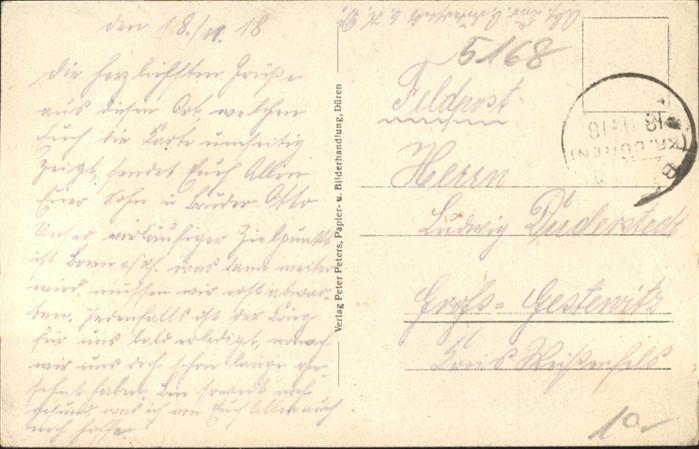 den 18./11. 18
Die herzlichsten Grüße
aus diesem Ort, welchen
Euch die Karte umseitig
Zeigt, sendet Euch Allen
Euer Sohn u. Bruder Otto
Unser vorläufiger Zielpunkt
ist Bonn a/Rh. was dann weiter
wird, müssen wir erst abwar-
ten. Jedenfalls ist der Krieg
für uns bald erledigt, wonach
wir uns doch schon lange ge-
sehnt haben. Bin soweit noch
gesund, was ich von Euch Allen auch
noch hoffe.
Verlag Peter Peters, Papier- u. Bilderhandlung, Düren
5168
Feldpost
Herrn
Ludwig Duderstedt
Groß-Gestewitz
Kreis Weißenfels
(KR. DÜREN)
10.-